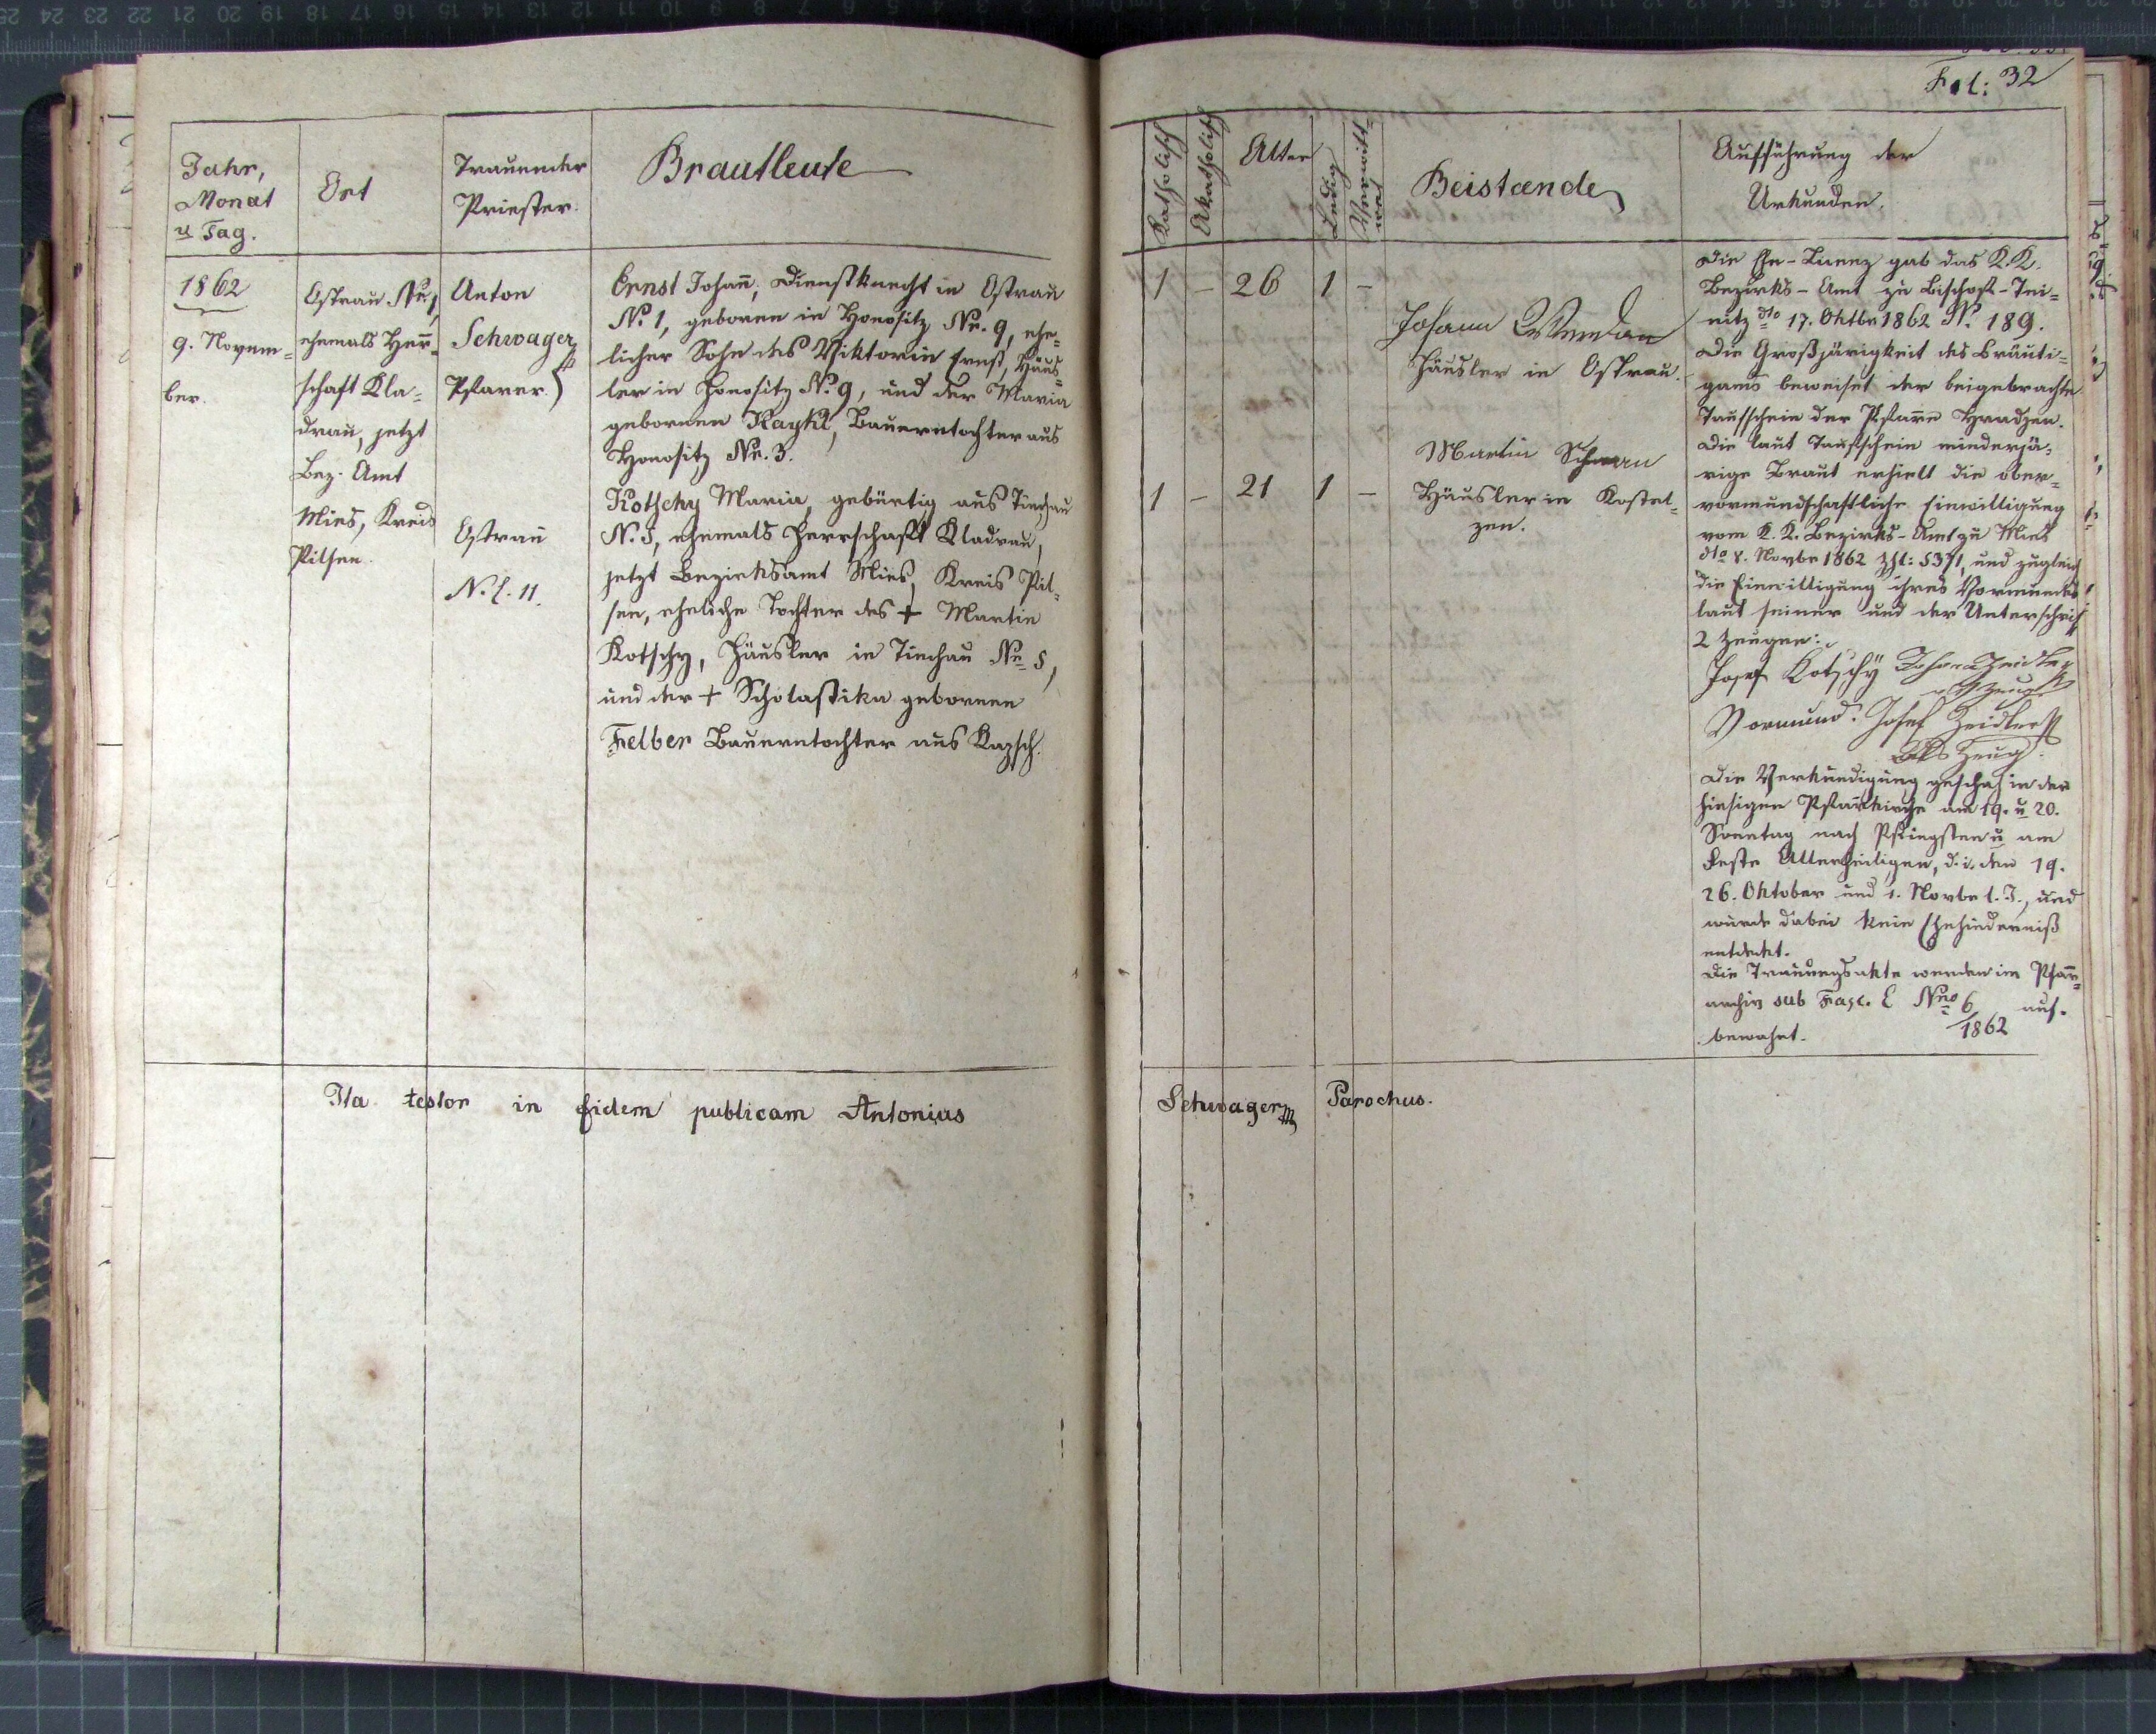 Fol: 32
Jahr,
Monat
u Tag.
Ort
Trauender
Priester.
Brautleute
Katholisch
Akatholisch
Alter
Ledig
Verwitt=
wet
Beistænde
Aufführung der
Urkunden.
1862
9. Novem=
ber.
Ostrau Nr. 1,
ehemals Herr=
schaft Kla=
drau, jetzt
Bez. Amt
Mies, Kreis
Pilsen.
Anton
Schwager
Pfarer.
Ostrau
N. C. 11.
Ernst Johañ, Dienstknecht in Ostrau
No. 1, geboren in Honositz Nr. 9, ehe=
licher Sohn des Viktorin Ernst, Häus=
ler in Honositz No. 9, und der Maria
gebornen Kaykl, Bauerntochter aus
Honositz Nr. 3.
Kotschy Maria, gebürtig aus Tinchau
N. 5, ehemals Herrschaft Kladrau,
jetzt Bezirksamt Mies, Kreis Pil=
sen, eheliche Tochter des + Martin
Kotschy, Häusler in Tinchau Nr. 5,
und der + Scholastika gebornen
Felber Bauerntochter aus
1 – 26 1 –
Johann
Häusler in Ostrau.
1 – 21 1 –
Martin
Häusler in Kostel=
zen.
Die Ehe-Licenz gab das K. K.
Bezirks-Amt zu Bischof-Tei=
nitz dto 17. Oktbr 1862 N. 189.
Die Großjärigkeit des Bräuti=
gams beweiset der beigebrachte
Taufschein der Pfarre Hradzen.
Die laut Taufschein minderjä=
rige Braut erhielt die ober=
vormundschaftliche Einwilligung
vom K. K. Bezirks-Amt zu Mies
dto 8. Novbr 1862 Zhl: 5371, und zugleich
die Einwilligung ihres Vormundes
laut seiner und der Unterschrift
2 Zeugen:
Josef Kotschÿ Johan Zeidler
als Zeuge
Vormund. Josef Zeidler
als Zeug.
Die Verkündigung geschah in der
hiesigen Pfarkirche am 19. u 20.
Sonntag nach Pfingsten u am
Feste Allerheiligen, d. i. den 19.
26. Oktober und 1. Novbr l. J., und
wurde dabei kein Ehehinderniß
entdekt.
Die Trauungsakte werden im Pfarr=
archiv sub Fasc. E Nro 6/1862 auf=
bewahrt.
Ita testor in fidem publicam Antonius Schwager Parochus.